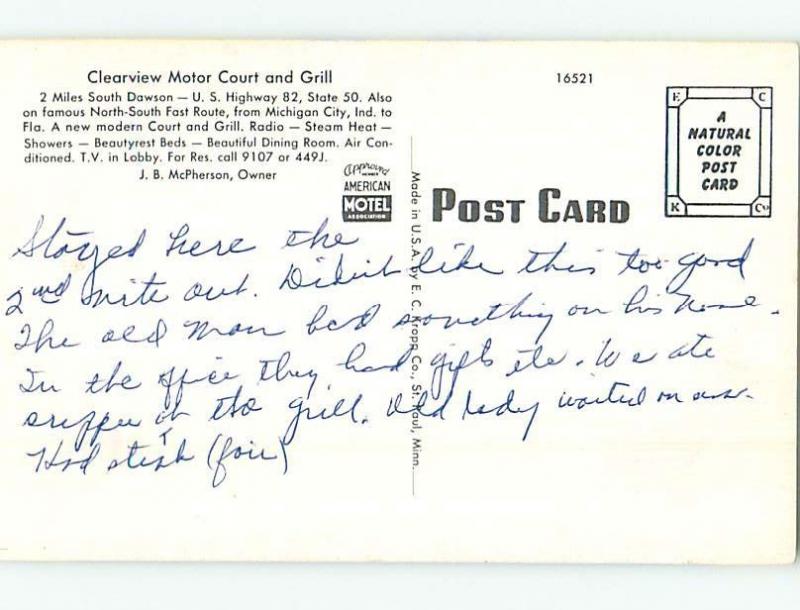 Clearview Motor Court and Grill
2 Miles South Dawson — U. S. Highway 82, State 50. Also
on famous North-South Fast Route, from Michigan City, Ind. to
Fla. A new modern Court and Grill. Radio — Steam Heat —
Showers — Beautyrest Beds — Beautiful Dining Room. Air Con-
ditioned. T.V. in Lobby. For Res. call 9107 or 449J.
J. B. McPherson, Owner
Approved
MEMBER
AMERICAN
MOTEL
ASSOCIATION
16521
E C
A
NATURAL
COLOR
POST
CARD
K Co
POST CARD
Made in U.S.A. by E. C. Kropp Co., St. Paul, Minn.
Stayed here the
2nd nite out. Didn't like this too good
The old man had something on his nose.
In the office they had gifts etc. We ate
supper at the grill. Old lady waited on us.
Had steak (fair)